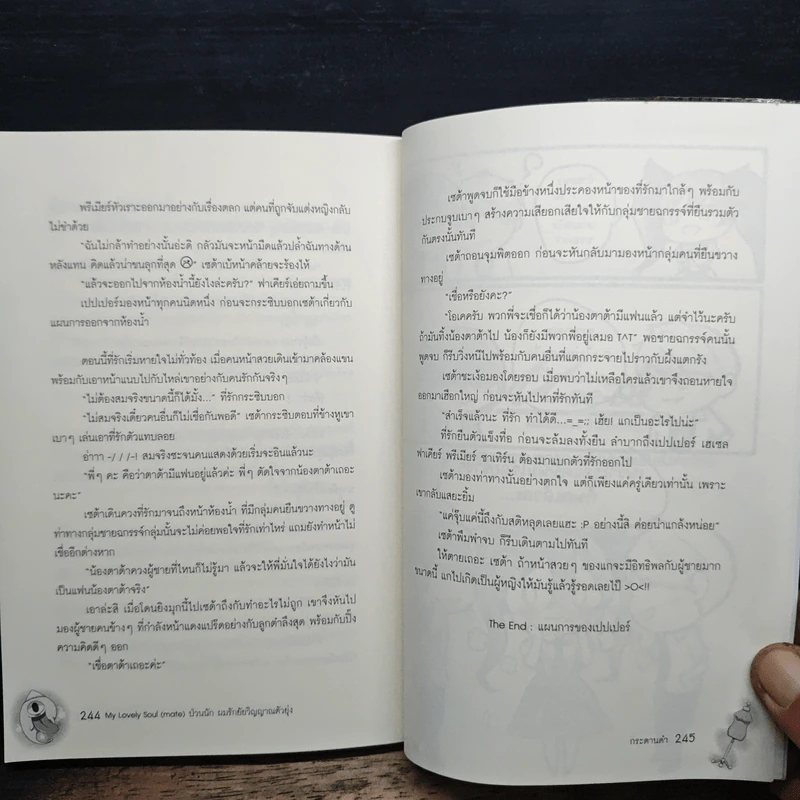 พรีเมียร์หัวเราะออกมาอย่างกับเรื่องตลก แต่คนที่ถูกจับแต่งหญิงกลับ
ไม่ขำด้วย
“ฉันไม่กล้าทำอย่างนั้นอ่ะดิ กลัวมันจะหน้ามืดแล้วปล้ำฉันทางด้าน
หลังแทน คิดแล้วน่าขนลุกที่สุด” เซต้าเบ้หน้าคล้ายจะร้องไห้
“แล้วจะออกไปจากห้องน้ำนี้ยังไงล่ะครับ?” ฟาเคียร์เอ่ยถามขึ้น
เปปเปอร์มองหน้าทุกคนนิดหนึ่ง ก่อนจะกระซิบบอกเซต้าเกี่ยวกับ
แผนการออกจากห้องน้ำ
ตอนนี้ที่รักเริ่มหายใจไม่ทั่วท้อง เมื่อคนหน้าสวยเดินเข้ามาคล้องแขน
พร้อมกับเอาหน้าแนบไปกับไหล่เขาอย่างกับคนรักกันจริงๆ
“ไม่ต้องสมจริงขนาดนี้ก็ได้มั้ง...” ที่รักกระซิบบอก
“ไม่สมจริงเดี๋ยวคนอื่นก็ไม่เชื่อกันพอดี” เซต้ากระซิบตอบที่ข้างหูเขา
เบาๆ เล่นเอาที่รักตัวแทบลอย
อ๋าาา -/ / /-! สมจริงซะจนคนแสดงด้วยเริ่มจะอินแล้วนะ
“พี่ๆ คะ คือว่าตาต้ามีแฟนอยู่แล้วค่ะ พี่ๆ ตัดใจจากน้องตาต้าเถอะ
นะคะ”
เซต้าเดินควงที่รักมาจนถึงหน้าห้องน้ำ ที่มีกลุ่มคนยืนขวางทางอยู่ ดู
ท่าทางกลุ่มชายฉกรรจ์กลุ่มนั้นจะไม่ค่อยพอใจที่รักเท่าไหร่ แถมยังทำหน้าไม่
เชื่ออีกต่างหาก
“น้องตาต้าควงผู้ชายที่ไหนก็ไม่รู้มา แล้วจะให้พี่มั่นใจได้ยังไงว่ามัน
เป็นแฟนน้องตาต้าจริง”
เอาล่ะสิ เมื่อโดนยิงมุกนี้ไปเซต้าถึงกับทำอะไรไม่ถูก เขาจึงหันไป
มองผู้ชายคนข้างๆ ที่กำลังหน้าแดงแปร๊ดอย่างกับลูกตำลึงสุด พร้อมกับปิ๊ง
ความคิดดีๆ ออก
“เชื่อตาต้าเถอะค่ะ”
244 My Lovely Soul (mate) ป่วนนัก ผมรักยัยวิญญาณตัวยุ่ง
เซต้าพูดจบก็ใช้มือข้างหนึ่งประคองหน้าของที่รักมาใกล้ๆ พร้อมกับ
ประกบจูบเบาๆ สร้างความเสียอกเสียใจให้กับกลุ่มชายฉกรรจ์ที่ยืนรวมตัว
กันตรงนั้นทันที
เซต้าถอนจุมพิตออก ก่อนจะหันกลับมามองหน้ากลุ่มคนที่ยืนขวาง
ทางอยู่
“เชื่อหรือยังคะ?”
“โอเคครับ พวกพี่จะเชื่อก็ได้ว่าน้องตาต้ามีแฟนแล้ว แต่จำไว้นะครับ
ถ้ามันทิ้งน้องตาต้าไป น้องก็ยังมีพวกพี่อยู่เสมอ T^T” พอชายฉกรรจ์คนนั้น
พูดจบ ก็รีบวิ่งหนีไปพร้อมกับคนอื่นที่แตกกระจายไปราวกับผึ้งแตกรัง
เซต้าชะเง้อมองโดยรอบ เมื่อพบว่าไม่เหลือใครแล้วเขาจึงถอนหายใจ
ออกมาเฮือกใหญ่ ก่อนจะหันไปหาที่รักทันที
“สำเร็จแล้วนะ ที่รัก ทำได้ดี...=_=;; เฮ้ย! แกเป็นอะไรไปน่ะ”
ที่รักยืนตัวแข็งทื่อ ก่อนจะล้มลงทั้งยืน ลำบากถึงเปปเปอร์ เฮเซล
ฟาเคียร์ พรีเมียร์ ซาเทิร์น ต้องมาแบกตัวที่รักออกไป
เซต้ามองท่าทางนั้นอย่างตกใจ แต่ก็เพียงแค่ครู่เดียวเท่านั้น เพราะ
เขากลับแสยะยิ้ม
“แค่จุ๊บแค่นี้ถึงกับสติหลุดเลยแฮะ :P อย่างนี้สิ ค่อยน่าแกล้งหน่อย”
เซต้าพึมพำจบ ก็รีบเดินตามไปทันที
ให้ตายเถอะ เซต้า ถ้าหน้าสวยๆ ของแกจะมีอิทธิพลกับผู้ชายมาก
ขนาดนี้ แกไปเกิดเป็นผู้หญิงให้มันรู้แล้วรู้รอดเลยไป๊ >O<!!
The End : แผนการของเปปเปอร์
กระดานดำ 245